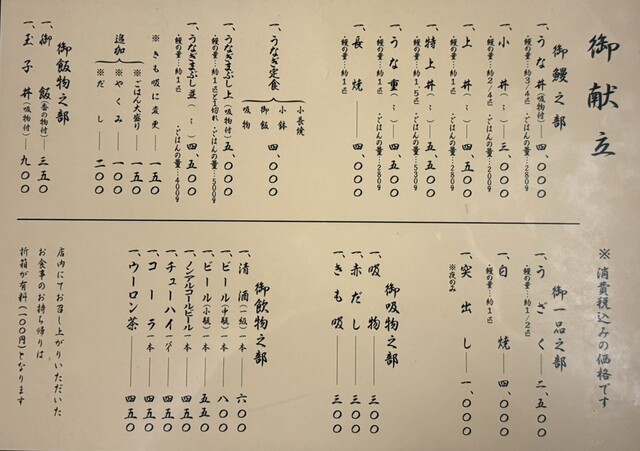 御献立
※消費税込みの価格です
御鰻之部
一、うな丼(吸物付)――四、〇〇〇
・鰻の量…約3/4匹 ・ごはんの量…280g
一、小丼(〃)――三、〇〇〇
・鰻の量…約2/4匹 ・ごはんの量…200g
一、上丼(〃)――四、五〇〇
・鰻の量…約1匹 ・ごはんの量…280g
一、特上丼(〃)――五、五〇〇
・鰻の量…約1.5匹 ・ごはんの量…530g
一、うな重(〃)――四、五〇〇
・鰻の量…約1匹 ・ごはんの量…280g
一、長焼――四、〇〇〇
・鰻の量…約1匹
一、うなぎ定食
小長焼
小鉢
御飯
吸物
四、〇〇〇
一、うなぎまぶし上(吸物付)五、〇〇〇
・鰻の量…約1匹と1切れ ・ごはんの量…500g
一、うなぎまぶし並(〃)四、五〇〇
・鰻の量…約1匹 ・ごはんの量…400g
※きも吸に変更――一五〇
追加
※ごはん大盛り――一五〇
※やくみ――一〇〇
※だし――二〇〇
御飯物之部
一、御飯(香の物付)――三五〇
一、玉子丼(吸物付)――九〇〇
御一品之部
一、うざく――二、五〇〇
・鰻の量…約1/2匹
一、白焼――四、〇〇〇
・鰻の量…約1匹
一、突出し――一、〇〇〇
※夜のみ
御吸物之部
一、吸物――三〇〇
一、赤だし――三〇〇
一、きも吸――三〇〇
御飲物之部
一、清酒(二級)一本――六〇〇
一、ビール(中瓶)一本――八〇〇
一、ビール(小瓶)一本――五五〇
一、ノンアルコールビール一本――四五〇
一、チューハイ――四五〇
一、コーラ一本――四五〇
一、ウーロン茶――四五〇
店内にてお召し上がりいただいた
お食事のお持ち帰りは
折箱が有料(一〇〇円)となります